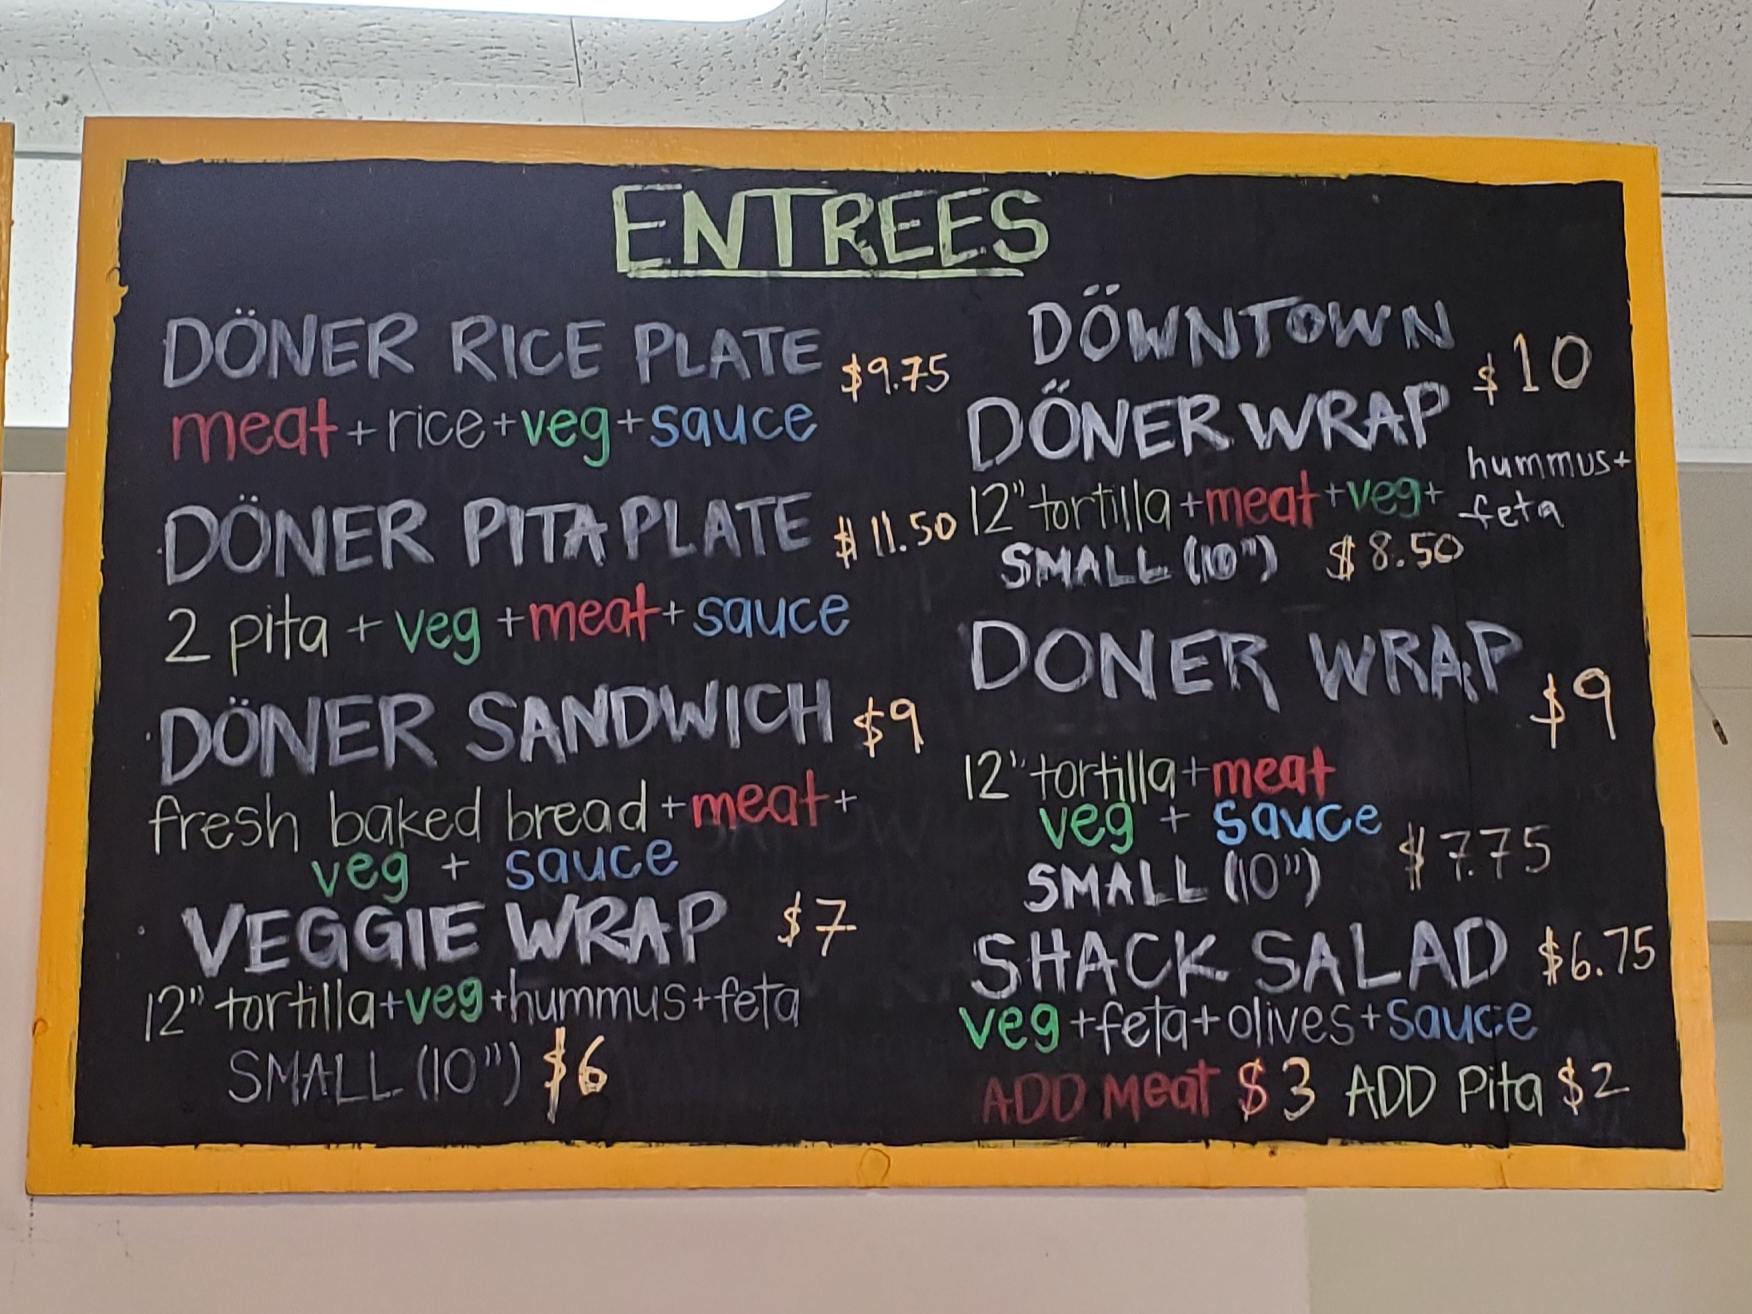 ENTREES
DÖNER RICE PLATE $9.75
meat + rice + veg + sauce
DÖNER PITA PLATE $11.50
2 pita + veg + meat + sauce
DÖNER SANDWICH $9
fresh baked bread + meat +
veg + sauce
VEGGIE WRAP $7
12" tortilla + veg + hummus + feta
SMALL (10") $6
DÖWNTOWN
DÖNER WRAP $10
12" tortilla + meat + veg + hummus +
feta
SMALL (10") $8.50
DONER WRAP $9
12" tortilla + meat
veg + sauce
SMALL (10") $7.75
SHACK SALAD $6.75
veg + feta + olives + sauce
ADD Meat $3 ADD Pita $2